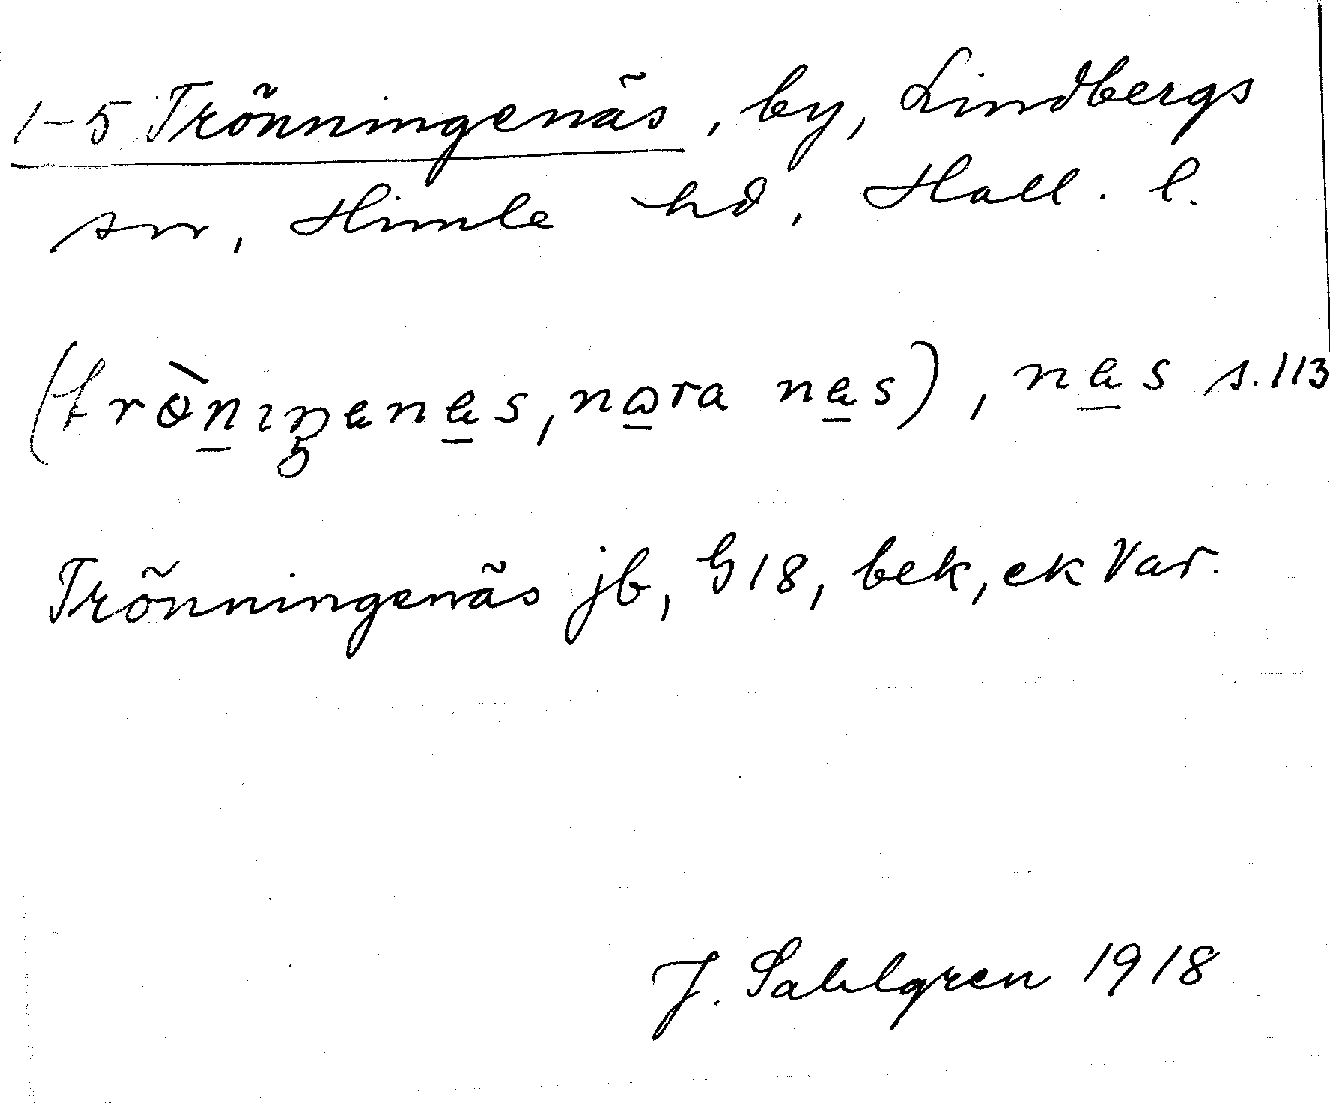 1-5 Trönningenäs, by, Lindbergs
sn, Himle hd, Hall. l.
(trò̱nıŋenas, nɷra nas), nas s.113
Trönningenäs jb, G18, bek, ek Var.
J. Sahlgren 1918